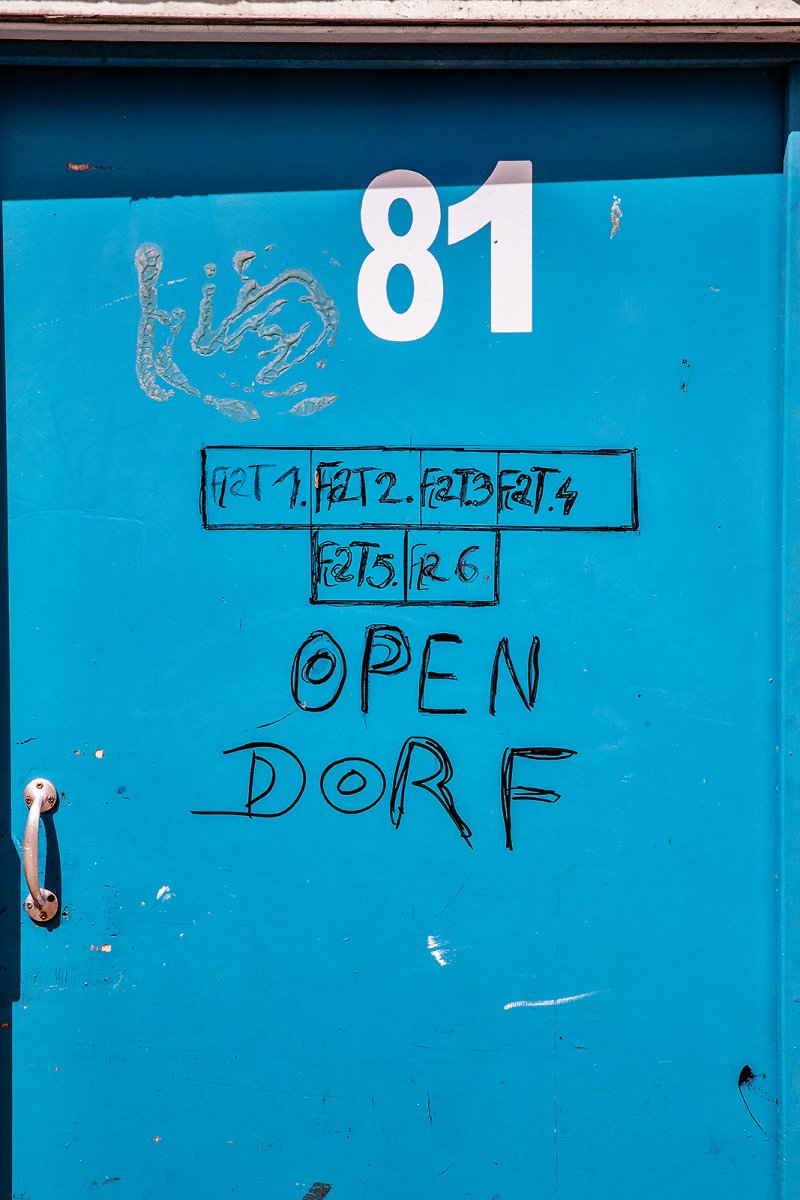 81
FlaT 1. FlaT 2. FlaT.3 FlaT.4
FlaT5. Fla 6.
OPEN
DORF